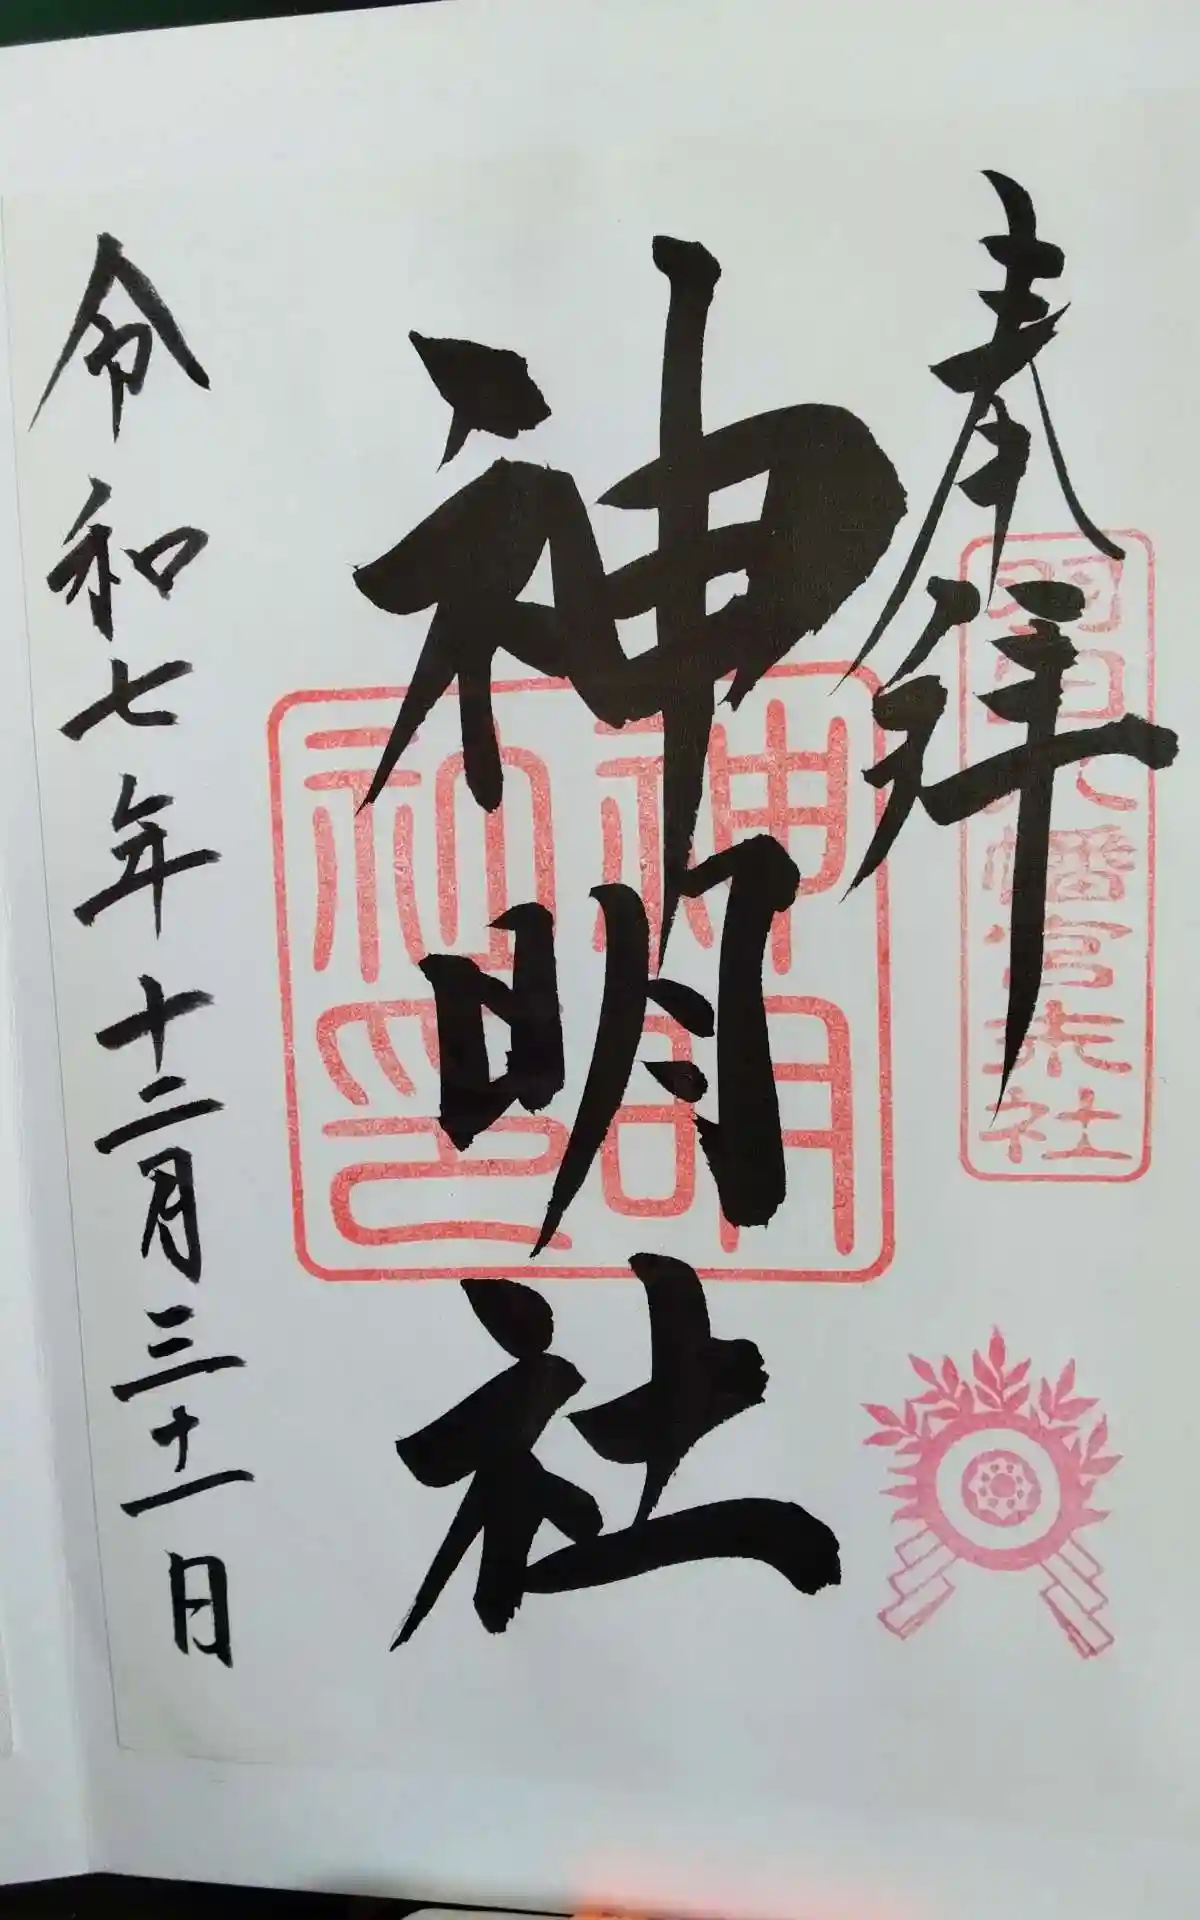 奉拝
羽田八幡宮末社
神明社
神明社印
令和七年十二月三十一日